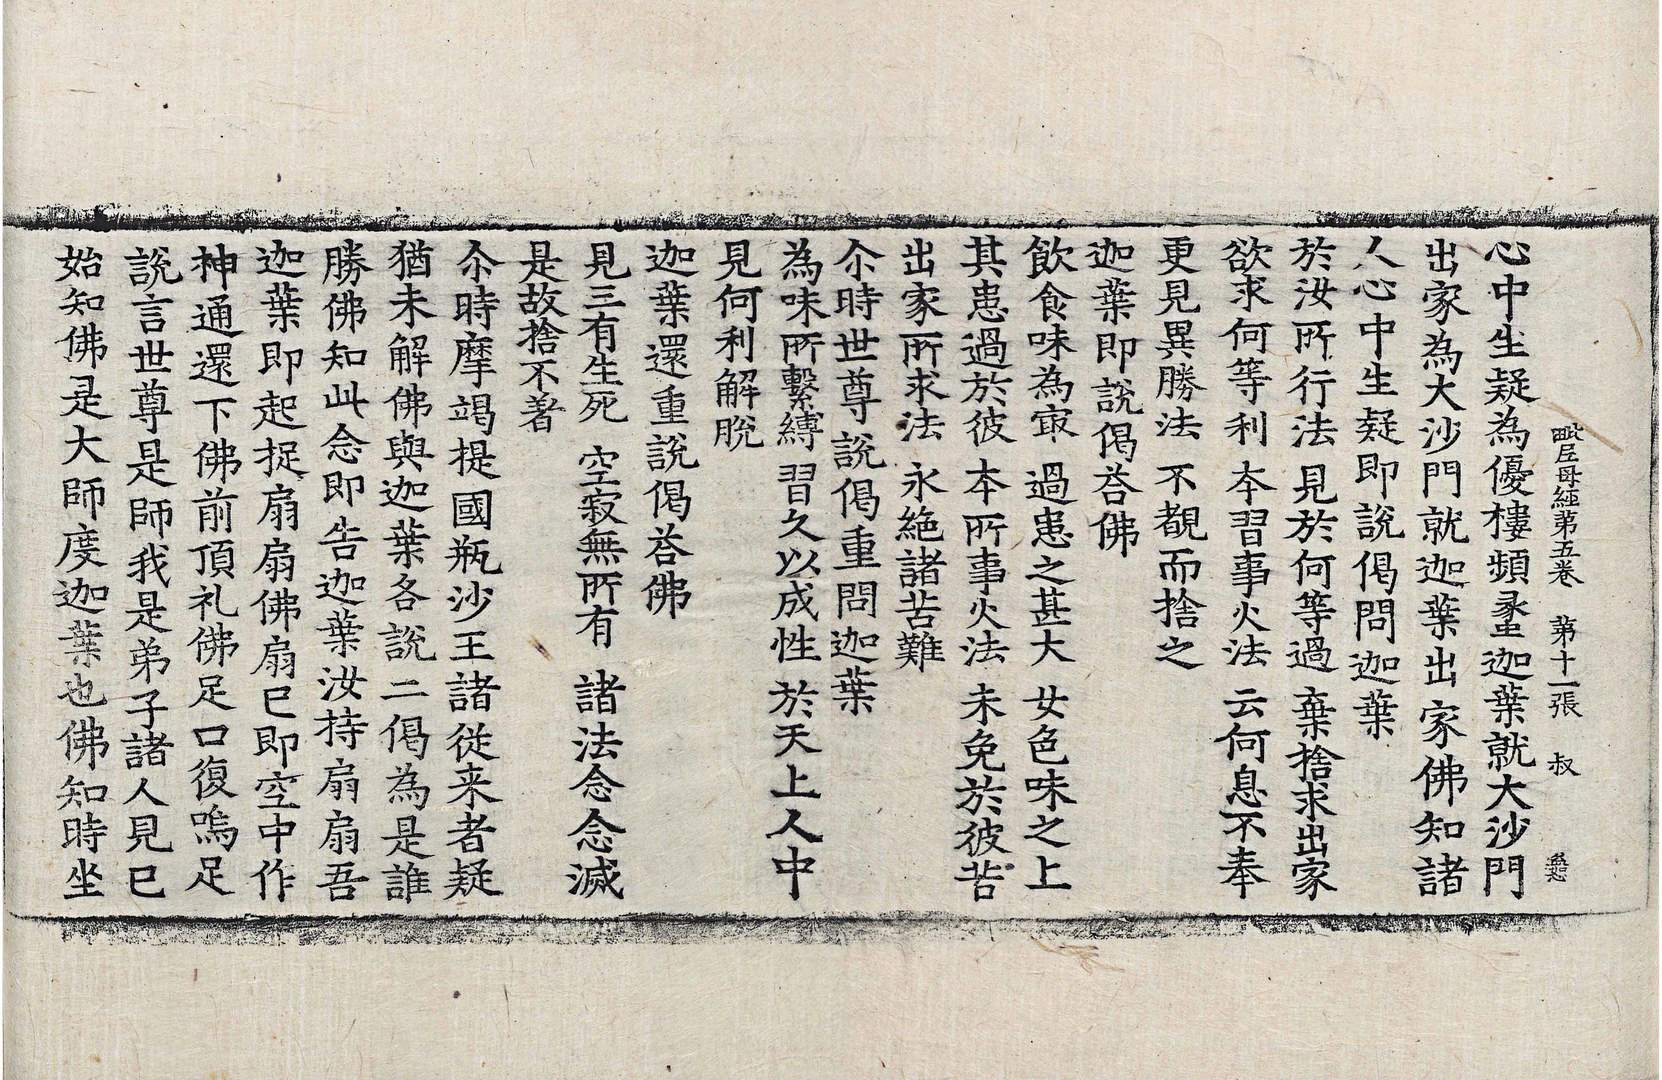 毗尼母經第五卷　第十一張　叔
心中生疑為優樓頻蠡迦葉就大沙門
出家為大沙門就迦葉出家佛知諸
人心中生疑即說偈問迦葉
於汝所行法　見於何等過　棄捨求出家
欲求何等利　本習事火法　云何息不奉
更見異勝法　不覩而捨之
迦葉即說偈荅佛
飲食味為㝡　過患之甚大　女色味之上
其患過於彼　本所事火法　未免於彼苦
出家所求法　永絕諸苦難
尒時世尊說偈重問迦葉
為味所繫縛　習久以成性　於天上人中
見何利解脫
迦葉還重說偈荅佛
見三有生死　空寂無所有　諸法念念滅
是故捨不著
尒時摩竭提國瓶沙王諸従来者疑
猶未解佛與迦葉各說二偈為是誰
勝佛知此念即告迦葉汝持扇扇吾
迦葉即起捉扇扇佛扇已即空中作
神通還下佛前頂礼佛足口復嗚足
說言世尊是師我是弟子諸人見已
始知佛是大師度迦葉也佛知時坐